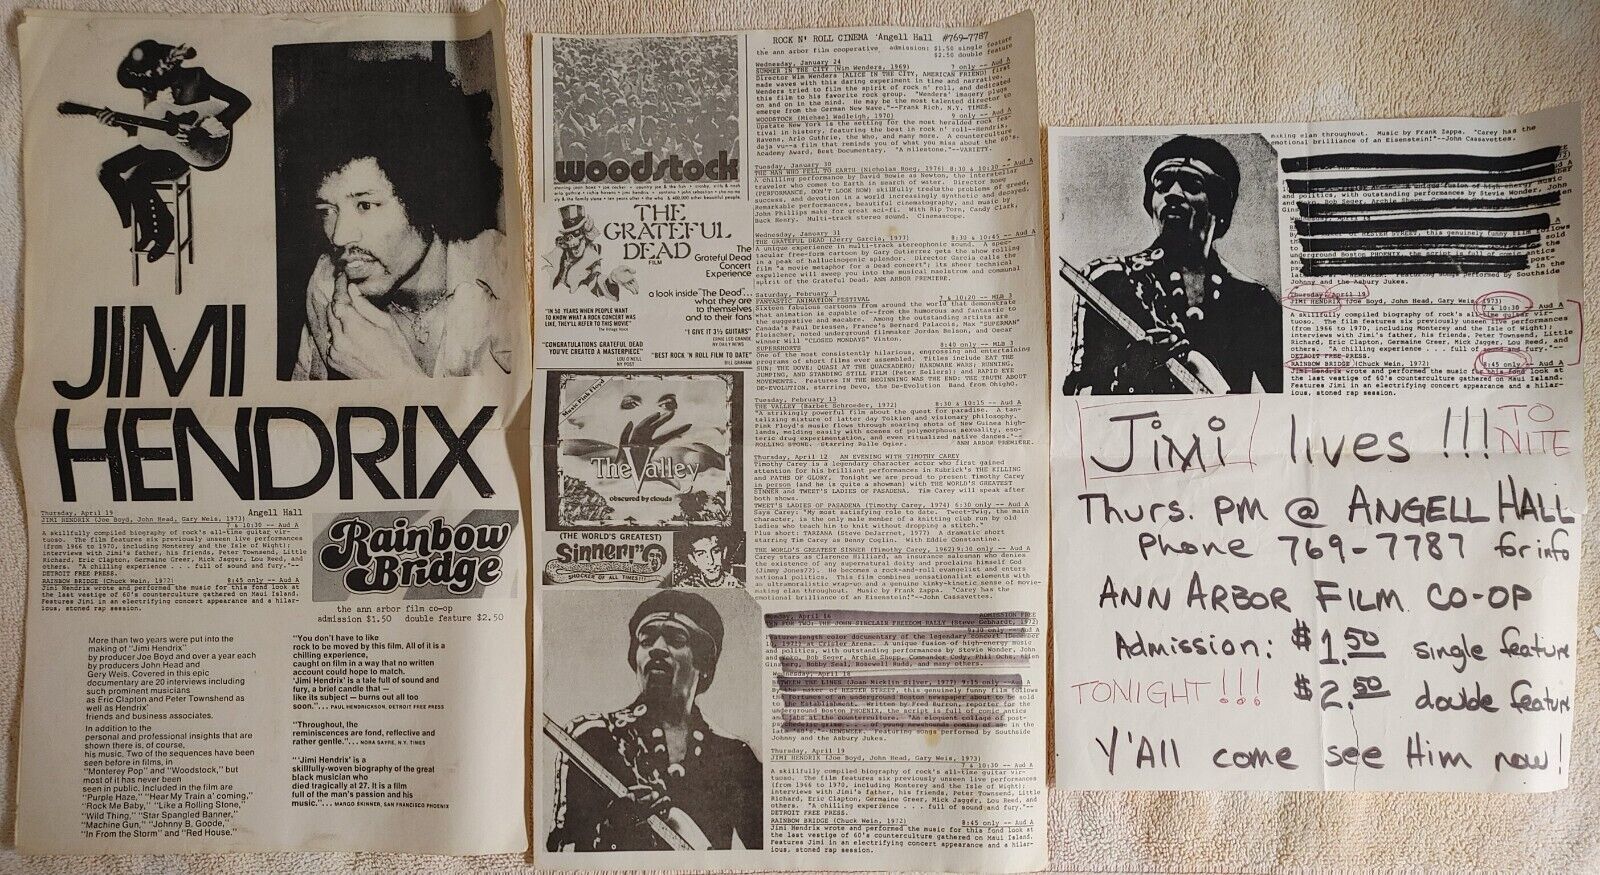 JIMI
HENDRIX
Thursday, April 19
Angell Hall
JIMI HENDRIX (Joe Boyd, John Head, Gary Weis, 1973)
7 & 10:30 -- Aud A
A skillfully compiled biography of rock's all-time guitar vir-
tuoso. The film features six previously unseen live performances
(from 1966 to 1970, including Monterey and the Isle of Wight);
interviews with Jimi's father, his friends, Peter Townsend, Little
Richard, Eric Clapton, Germaine Greer, Mick Jagger, Lou Reed, and
others. "A chilling experience . . . full of sound and fury."--
DETROIT FREE PRESS.
RAINBOW BRIDGE (Chuck Wein, 1972) 8:45 only -- Aud A
Jimi Hendrix wrote and performed the music for this fond look at
the last vestige of 60's counterculture gathered on Maui Island.
Features Jimi in an electrifying concert appearance and a hilar-
ious, stoned rap session.
Rainbow
Bridge
the ann arbor film co-op
admission $1.50 double feature $2.50
More than two years were put into the
making of "Jimi Hendrix"
by producer Joe Boyd and over a year each
by producers John Head and
Gery Weis. Covered in this epic
documentary are 20 interviews including
such prominent musicians
as Eric Clapton and Peter Townshend as
well as Hendrix'
friends and business associates.
In addition to the
personal and professional insights that are
shown there is, of course,
his music. Two of the sequences have been
seen before in films, in
"Monterey Pop" and "Woodstock," but
most of it has never been
seen in public. Included in the film are
"Purple Haze," "Hear My Train a' coming,"
"Rock Me Baby," "Like a Rolling Stone,"
"Wild Thing," "Star Spangled Banner,"
"Machine Gun," "Johnny B. Goode,"
"In From the Storm" and "Red House."
"You don't have to like
rock to be moved by this film. All of it is a
chilling experience,
caught on film in a way that no written
account could hope to match.
'Jimi Hendrix' is a tale full of sound and
fury, a brief candle that —
like its subject — burns out all too
soon."... PAUL HENDRICKSON, DETROIT FREE PRESS
"Throughout, the
reminiscences are fond, reflective and
rather gentle."... NORA SAYRE, N.Y. TIMES
"'Jimi Hendrix' is a
skillfully-woven biography of the great
black musician who
died tragically at 27. It is a film
full of the man's passion and his
music."... MARGO SKINNER, SAN FRANCISCO PHOENIX
ROCK N' ROLL CINEMA 'Angell Hall #769-7787
the ann arbor film cooperative admission: $1.50 single feature
$2.50 double feature
woodstock
Wednesday, January 24
SUMMER IN THE CITY (Wim Wenders, 1969) 7 only -- Aud A
Director Wim Wenders (ALICE IN THE CITY, AMERICAN FRIEND) first
made waves with this daring experiment in time and narrative.
Wenders tried to film the spirit of rock n' roll, and dedicated
this film to his favorite rock group. "Wenders' imagery plugs
on and on in the mind. He may be the most talented director to
emerge from the German New Wave."--Frank Rich, N.Y. TIMES.
WOODSTOCK (Michael Wadleigh, 1970) 9 only -- Aud A
Upstate New York is the setting for the most heralded rock fes-
tival in history, featuring the best in rock n' roll--Hendrix,
Havens, Arlo Guthrie, the Who, and many more. A counterculture
deja vu--a film that reminds you of what you miss about the 60's.
Academy Award, Best Documentary, "A milestone."--VARIETY.
Tuesday, January 30
THE MAN WHO FELL TO EARTH (Nicholas Roeg, 1976) 8:30 & 10:30 -- Aud A
A chilling performance by David Bowie as Newton, the interstellar
traveler who comes to Earth in search of water. Director Roeg
(PERFORMANCE, DON'T LOOK NOW) skillfully treats the problems of greed,
success, and devotion in a world increasingly synthetic and decayed.
Remarkable performances, beautiful cinematography, and music by
John Phillips make for great sci-fi. With Rip Torn, Candy Clark,
Buck Henry. Multi-track stereo sound. Cinemascope.
THE
GRATEFUL
DEAD
FILM
The
Grateful Dead
Concert
Experience
a look inside "The Dead"...
what they are
to themselves
and to their fans
"IN 50 YEARS WHEN PEOPLE WANT
TO KNOW WHAT A ROCK CONCERT WAS
LIKE, THEY'LL REFER TO THIS MOVIE"
The Village Voice
"I GIVE IT 3½ GUITARS"
ERNIE LEO GRANDE
NY DAILY NEWS
"CONGRATULATIONS GRATEFUL DEAD
YOU'VE CREATED A MASTERPIECE"
NY POST
"BEST ROCK 'N ROLL FILM TO DATE"
BILL GRAHAM
Wednesday, January 31
THE GRATEFUL DEAD (Jerry Garcia, 1977) 8:30 & 10:45 -- Aud A
A unique experience in multi-track stereophonic sound. A spec-
tacular free-form cartoon by Gary Gutierrez gets the show rolling
in a peak of hallucinogenic splendor. Director Garcia calls the
film "a movie metaphor for a Dead concert"; its sheer technical
experience will sweep you into the musical maelstrom and communal
spirit of the Grateful Dead. ANN ARBOR PREMIERE.
Saturday, February 3
FANTASTIC ANIMATION FESTIVAL 7 & 10:20 -- MLB 3
Sixteen fabulous cartoons from around the world that demonstrate
what animation is capable of--from the humorous and fantastic to
the suggestive and macabre. Among the outstanding artists are
Canada's Paul Driessen, France's Bernard Palacois, Max "SUPERMAN"
Fleischer, noted underground filmmaker Jordan Belson, and Oscar
winner Will "CLOSED MONDAYS" Vinton.
SUPERSHORTS 8:40 only -- MLB 3
One of the most consistently hilarious, engrossing and entertaining
programs of short films ever assembled. Titles include EAT THE
SUN; THE DOVE; QUASI AT THE QUACKADERO; HARDWARE WARS; RUNNING,
JUMPING, AND STANDING STILL FILM (Peter Sellers); and RAPID EYE
MOVEMENTS. Features IN THE BEGINNING WAS THE END: THE TRUTH ABOUT
DE-EVOLUTION, starring Devo, the De-Evolution Band from OhighO.
Music Pink Floyd
The Valley
obscured by clouds
Tuesday, February 13
THE VALLEY (Barbet Schroeder, 1972) 8:30 & 10:15 -- Aud A
"A strikingly powerful film about the quest for paradise. A tan-
talizing mixture of latter day Tolkien and visionary philosophy.
Pink Floyd's music flows through soaring shots of New Guinea high-
lands, molding easily with scenes of polymorphous sexuality, eso-
teric drug experimentation, and even ritualized native dances."--
ROLLING STONE. Starring Bulle Ogier. ANN ARBOR PREMIERE.
Thursday, April 12 AN EVENING WITH TIMOTHY CAREY
Timothy Carey is a legendary character actor who first gained
attention for his brilliant performances in Kubrick's THE KILLING
and PATHS OF GLORY. Tonight we are proud to present Timothy Carey
in person (and he is quite a showman) with THE WORLD'S GREATEST
SINNER and TWEET'S LADIES OF PASADENA. Tim Carey will speak after
both shows.
TWEET'S LADIES OF PASADENA (Timothy Carey, 1974) 6:30 only -- Aud A
Says Carey: "My most satisfying role to date. Tweet-Twig, the main
character, is the only male member of a knitting club run by old
ladies who teach him to knit without dropping a stitch."
Plus short: TARZANA (Steve DeJarrnet, 197?) A dramatic short
starring Tim Carey and Benny Coplin. With Eddie Constantine.
(THE WORLD'S GREATEST)
Sinner!"
SHOCKER OF ALL TIMES!!!
THE WORLD'S GREATEST SINNER (Timothy Carey, 1962) 9:30 only -- Aud A
Carey stars as Clarence Hilliard, an insurance salesman who denies
the existence of any supernatural deity and proclaims himself God
(Jimmy Jones??). He becomes a rock-and-roll evangelist and enters
national politics. This film combines sensationalist elements with
an ultramoralistic wrap-up and a genuine kinky-kinetic sense of movie-
making elan throughout. Music by Frank Zappa. "Carey has the
emotional brilliance of an Eisenstein!"--John Cassavettes.
Monday, April 16 ADMISSION FREE
TEN FOR TWO: THE JOHN SINCLAIR FREEDOM RALLY (Steve Gebhardt, 1972)
9:30 only -- Aud A
Feature-length color documentary of the legendary concert (December
Wednesday, April 18
BETWEEN THE LINES (Joan Micklin Silver, 1977) 9:15 only -- Aud A
By the maker of HESTER STREET, this genuinely funny film follows
the fortunes of an underground Boston newspaper about to be sold
to the Establishment. Written by Fred Burron, reporter for the
underground Boston PHOENIX, the script is full of comic antics
Johnny and the Asbury Jukes.
Thursday, April 19
JIMI HENDRIX (Joe Boyd, John Head, Gary Weis, 1973)
7 & 10:30 -- Aud A
A skillfully compiled biography of rock's all-time guitar vir-
tuoso. The film features six previously unseen live performances
(from 1966 to 1970, including Monterey and the Isle of Wight);
interviews with Jimi's father, his friends, Peter Townsend, Little
Richard, Eric Clapton, Germaine Greer, Mick Jagger, Lou Reed, and
others. "A chilling experience . . . full of sound and fury."--
DETROIT FREE PRESS.
RAINBOW BRIDGE (Chuck Wein, 1972) 8:45 only -- Aud A
Jimi Hendrix wrote and performed the music for this fond look at
the last vestige of 60's counterculture gathered on Maui Island.
Features Jimi in an electrifying concert appearance and a hilar-
ious, stoned rap session.
making elan throughout. Music by Frank Zappa. "Carey has the
emotional brilliance of an Eisenstein!"--John Cassavettes.
Johnny and the Asbury Jukes.
Thursday, April 19
JIMI HENDRIX (Joe Boyd, John Head, Gary Weis, 1973)
7 & 10:30 -- Aud A
A skillfully compiled biography of rock's all-time guitar vir-
tuoso. The film features six previously unseen live performances
(from 1966 to 1970, including Monterey and the Isle of Wight);
interviews with Jimi's father, his friends, Peter Townsend, Little
Richard, Eric Clapton, Germaine Greer, Mick Jagger, Lou Reed, and
others. "A chilling experience . . . full of sound and fury."--
DETROIT FREE PRESS.
RAINBOW BRIDGE (Chuck Wein, 1972) 8:45 only -- Aud A
Jimi Hendrix wrote and performed the music for this fond look at
the last vestige of 60's counterculture gathered on Maui Island.
Features Jimi in an electrifying concert appearance and a hilar-
ious, stoned rap session.
Jimi lives !!! TO
NITE
Thurs. PM @ ANGELL HALL
Phone 769-7787 for info
ANN ARBOR FILM CO-OP
Admission: $1.50 single feature
TONIGHT!!! $2.50 double feature
Y'All come see Him now!